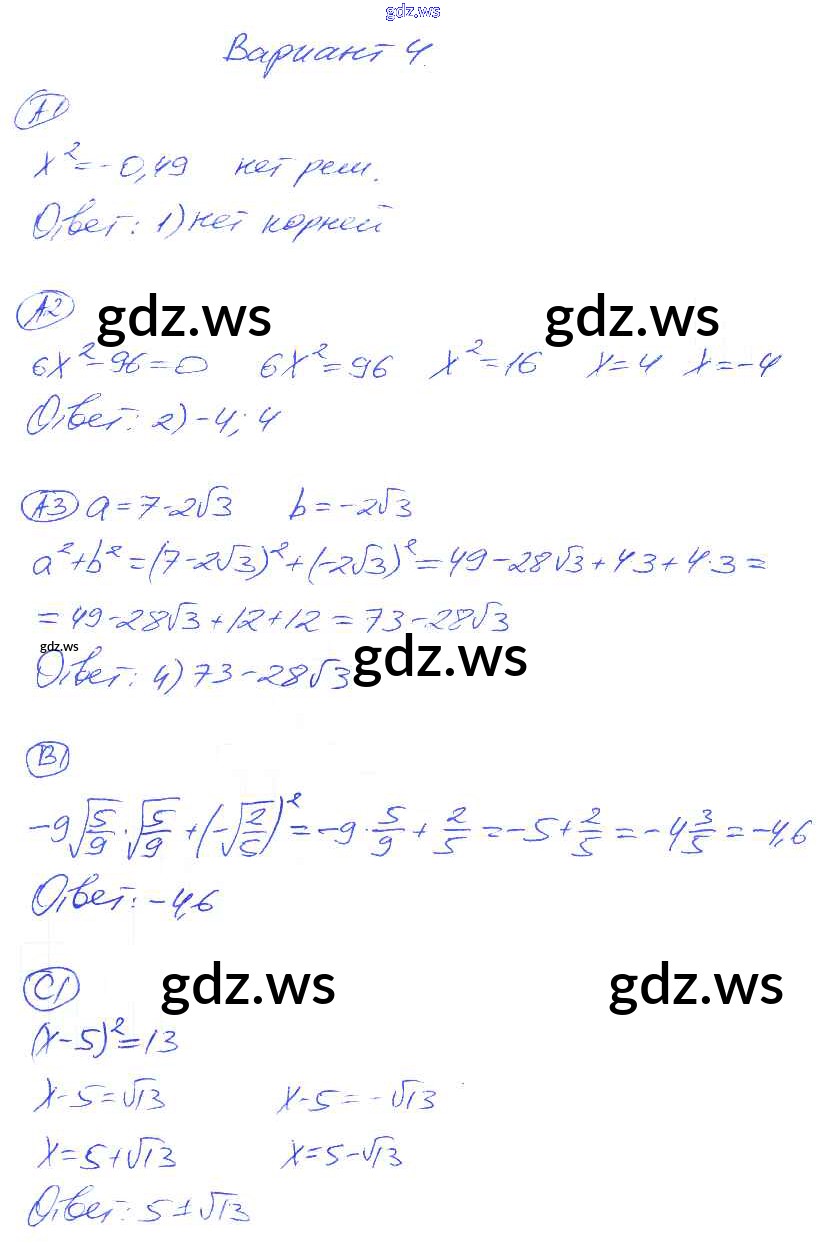 gdz.ws
Вариант 4
А1
x² = -0,49 нет реш.
Ответ: 1) нет корней
А2
gdz.ws gdz.ws
6x² - 96 = 0 6x² = 96 x² = 16 x = 4 x = -4
Ответ: 2) -4; 4
А3 a = 7 - 2√3 b = -2√3
a² + b² = (7 - 2√3)² + (-2√3)² = 49 - 28√3 + 4·3 + 4·3 =
= 49 - 28√3 + 12 + 12 = 73 - 28√3
gdz.ws gdz.ws
Ответ: 4) 73 - 28√3
В1
-9√5/9 · √5/9 + (-√2/5)² = -9 · 5/9 + 2/5 = -5 + 2/5 = -4 3/5 = -4,6
Ответ: -4,6
gdz.ws gdz.ws
С1
(x - 5)² = 13
x - 5 = √13 x - 5 = -√13
x = 5 + √13 x = 5 - √13
Ответ: 5 ± √13